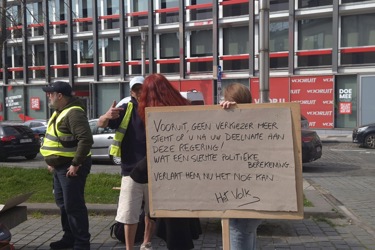 VOORUIT
VOORUIT
VOORUIT
DOE
MEE
VOORUIT, GEEN VERKIEZER MEER
STEMT OP U NA UW DEELNAME AAN
DEZE REGERING!
WAT EEN SLECHTE POLITIEKE
BEREKENING.
VERLAAT HEM NU HET NOG KAN
Het Volk